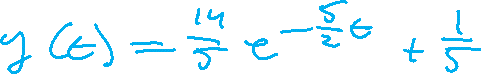 y(t) = 14/5 e^{-5/2 t} + 1/5